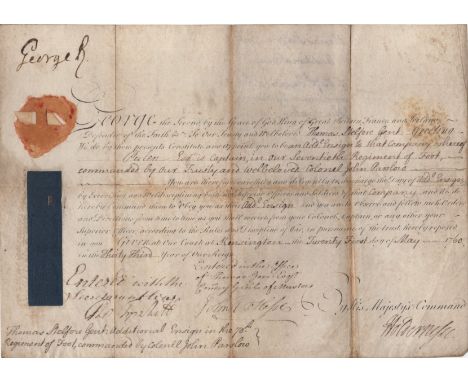 George R
George the Second, by the Grace of God, King of Great Britain, France and Ireland,
Defender of the Faith &c To Our Trusty and Welbeloved Thomas Gent. Greeting
We do by these presents Constitute and appoint you to be an Add. Ensign to that Company whereof
Esq. is Captain, in our Seventieth Regiment of Foot,
commanded by Our Trusty and Welbeloved Colonel John Parslow
You are therefore carefully and diligently to discharge the Duty of Add. Ensign
by Exercising and Well disciplining both the Inferior Officers and Soldiers of that Company, and We do
hereby Command them to Obey you as their Add. Ensign and you are to observe and follow such Orders
and Directions from time to time as you shall receive from your Colonel, Captain or any other your
Superior Officer, according to the Rules and Discipline of War, in pursuance of the trust hereby reposed
in you. GIVEN at Our Court at Kensington the Twenty First day of May 1760
in the Thirty Third Year of Our Reign.
Entered with the
Entered in the Office
By His Majesty's Command
Holdernesse
Thomas Gent. Additional Ensign in the 70th
Regiment of Foot, commanded by Colonel John Parslow